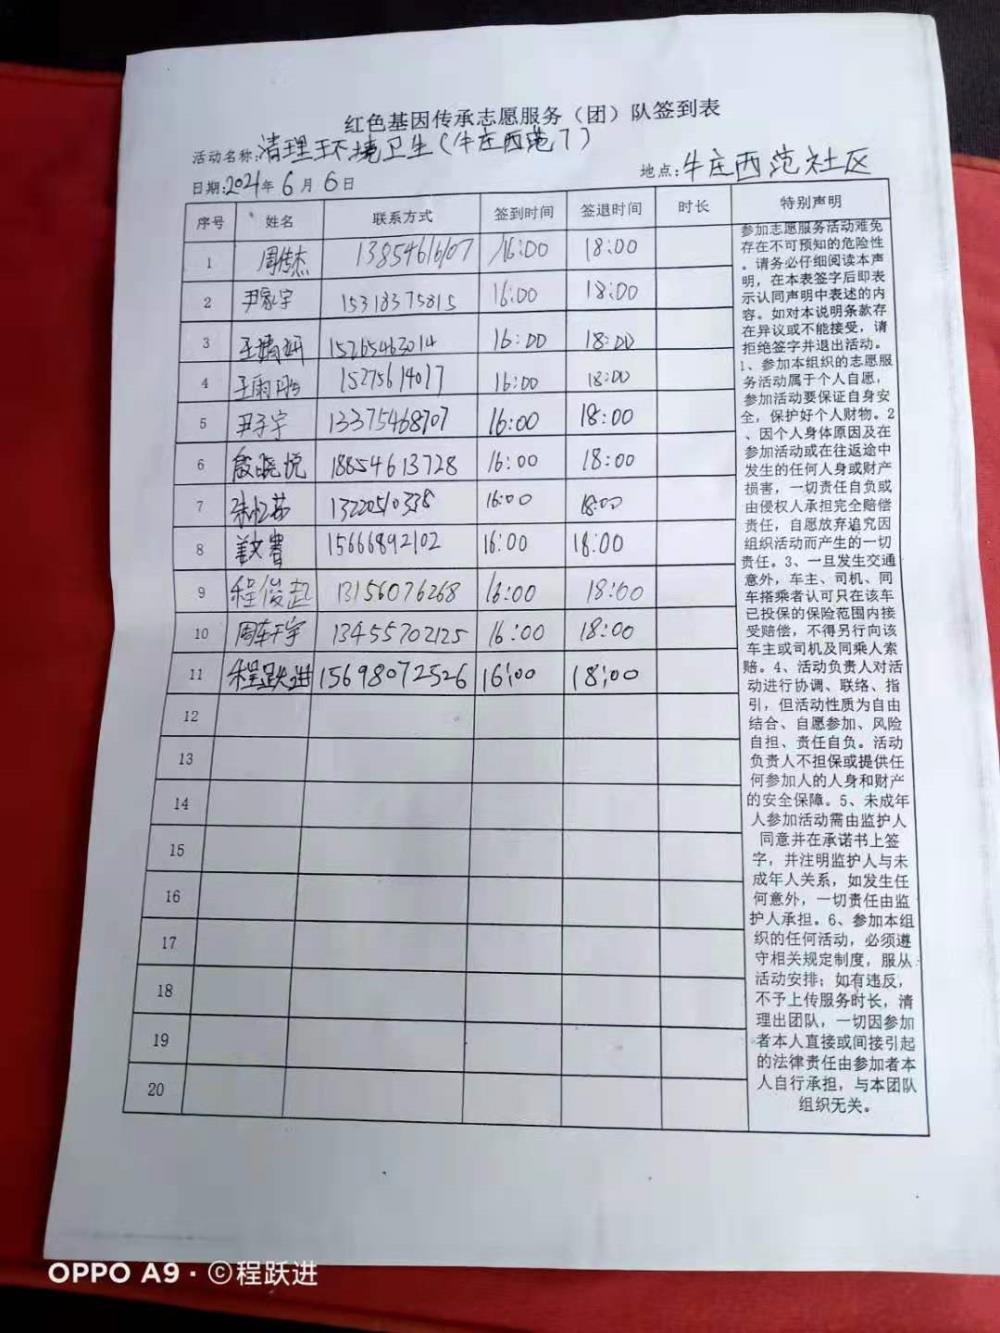 红色基因传承志愿服务（团）队签到表
活动名称:清理环境卫生(牛庄西范7)
日期:2021年6月6日 地点:牛庄西范社区
序号 姓名 联系方式 签到时间 签退时间 时长 特别声明
1 周传杰 13854616107 16:00 18:00
2 尹家宇 15318375815 16:00 18:00
3 15265463014 16:00 18:00
4 15275614017 16:00 18:00
5 尹子宇 13375468707 16:00 18:00
6 殷晓悦 18854613728 16:00 18:00
7 13220510338 16:00 18:00
8 15666892102 16:00 18:00
9 程俊起 13156076268 16:00 18:00
10 13455702125 16:00 18:00
11 程跃进 15698072526 16:00 18:00
12
13
14
15
16
17
18
19
20
参加志愿服务活动难免
存在不可预知的危险性
。请务必仔细阅读本声
明，在本表签字后即表
示认同声明中表述的内
容。如对本说明条款存
在异议或不能接受，请
拒绝签字并退出活动。
1、参加本组织的志愿服
务活动属于个人自愿，
参加活动要保证自身安
全，保护好个人财物。2
、因个人身体原因及在
参加活动或在往返途中
发生的任何人身或财产
损害，一切责任自负或
由侵权人承担完全赔偿
责任，自愿放弃追究因
组织活动而产生的一切
责任。3、一旦发生交通
意外，车主、司机、同
车搭乘者认可只在该车
已投保的保险范围内接
受赔偿，不得另行向该
车主或司机及同乘人索
赔。4、活动负责人对活
动进行协调、联络、指
引，但活动性质为自由
结合、自愿参加、风险
自担、责任自负。活动
负责人不担保或提供任
何参加人的人身和财产
的安全保障。5、未成年
人参加活动需由监护人
同意并在承诺书上签
字，并注明监护人与未
成年人关系，如发生任
何意外，一切责任由监
护人承担。6、参加本组
织的任何活动，必须遵
守相关规定制度，服从
活动安排；如有违反，
不予上传服务时长，清
理出团队，一切因参加
者本人直接或间接引起
的法律责任由参加者本
人自行承担，与本团队
组织无关。
OPPO A9 · ©程跃进